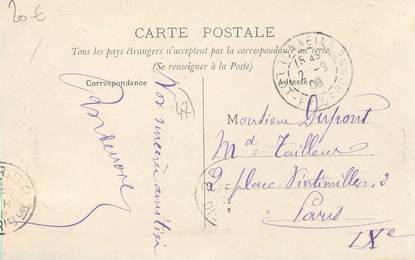 20€
CARTE POSTALE
Tous les pays étrangers n'acceptent pas la correspondance au recto
(Se renseigner à la Poste)
Correspondance
Adresse
15 45
2 - 9
08
47
Nos sincères amitiés
Monsieur Dupont
Md Tailleur
2 place Vintimille, 2
Paris
IXe